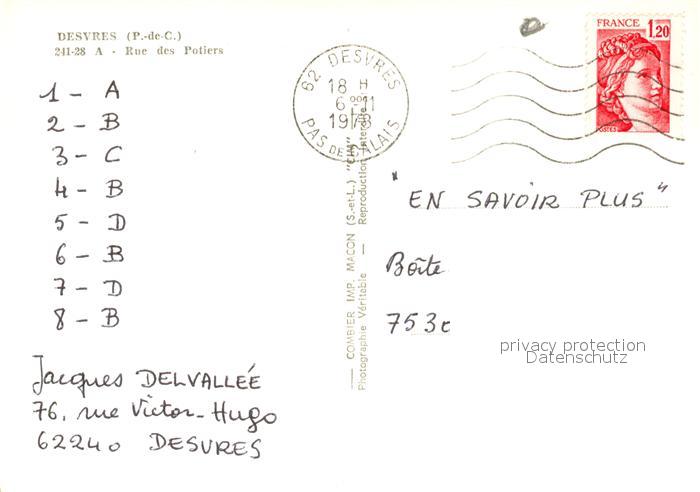 DESVRES (P.-de-C.)
241-28 A - Rue des Potiers
1 - A
2 - B
3 - C
4 - B
5 - D
6 - B
7 - D
8 - B
Jacques DELVALLEÉ
76, rue Victor-Hugo
62240 DESVRES
COMBIER IMP. MACON (S.-et-L.) "CIM"
Photographie Véritable — Reproduction Interdite
62 DESVRES
18 H
6 - 11
1978
PAS DE CALAIS
FRANCE
1,20
POSTES
"EN SAVOIR PLUS"
Boîte
753
privacy protection
Datenschutz